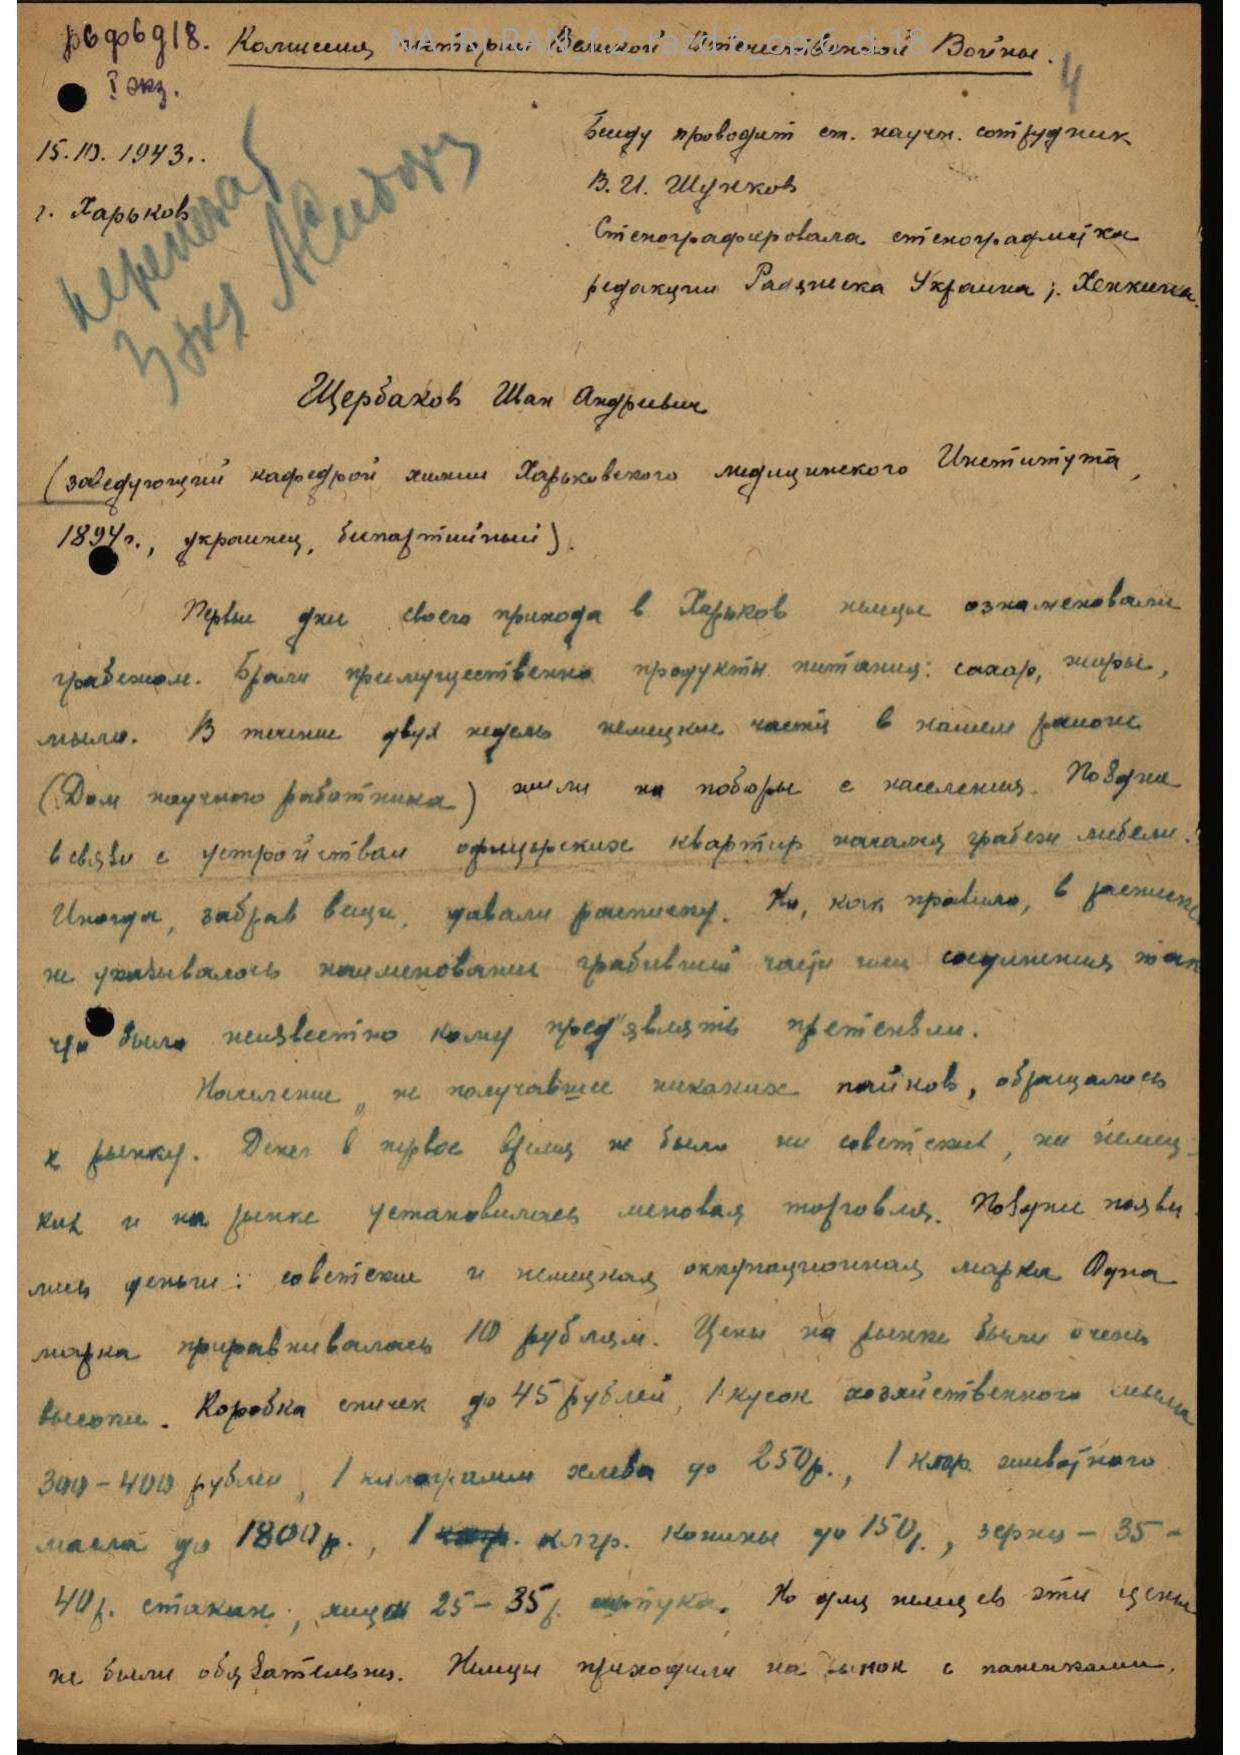 р6ф6д18.
Комиссия истории Великой Отечественной Войны.
NA IRI RAN f.2_razd.6_op.6_d.18
4
I экз.
15.10.1943..
г. Харьков
Беседу проводит ст. научн. сотрудник
В.И. Шунков
Стенографировала стенографистка
редакции Радянська Украина т. Хенкина.
3 экз
Щербаков Иван Андреевич
(заведующий кафедрой химии Харьковского медицинского Института,
1894г., украинец, беспартийный).
Первые дни своего прихода в Харьков немцы ознаменовали
грабежом. Брали преимущественно продукты питания: сахар, жиры,
мыло. В течение двух недель немецкие части в нашем районе
(Дом научного работника) жили на поборы с населения. Позднее
в связи с устройством офицерских квартир начался грабеж мебели.
Иногда, забрав вещи, давали расписку. Но, как правило, в расписке
не указывалось наименование грабившей части или соединения так
что было неизвестно кому пред'являть претензии.
Население, не получавшее никаких пайков, обращалось
к рынку. Денег в первое время не было ни советских, ни немец-
ких и на рынке установилась меновая торговля. Позднее появи-
лись деньги: советские и немецкая оккупационная марка Одна
марка приравнивалась 10 рублям. Цены на рынке были очень
высоки. Коробка спичек до 45 рублей, 1 кусок хозяйственного мыла
300-400 рублей, 1 килограмм хлеба до 250р., 1 клгр. животного
масла до 1800р., 1 клгр. конины до 150р., зерно - 35-
40р. стакан, яйцо 25-35р. штука. Но для немцев эти цены
не были обязательны. Немцы приходили на рынок с